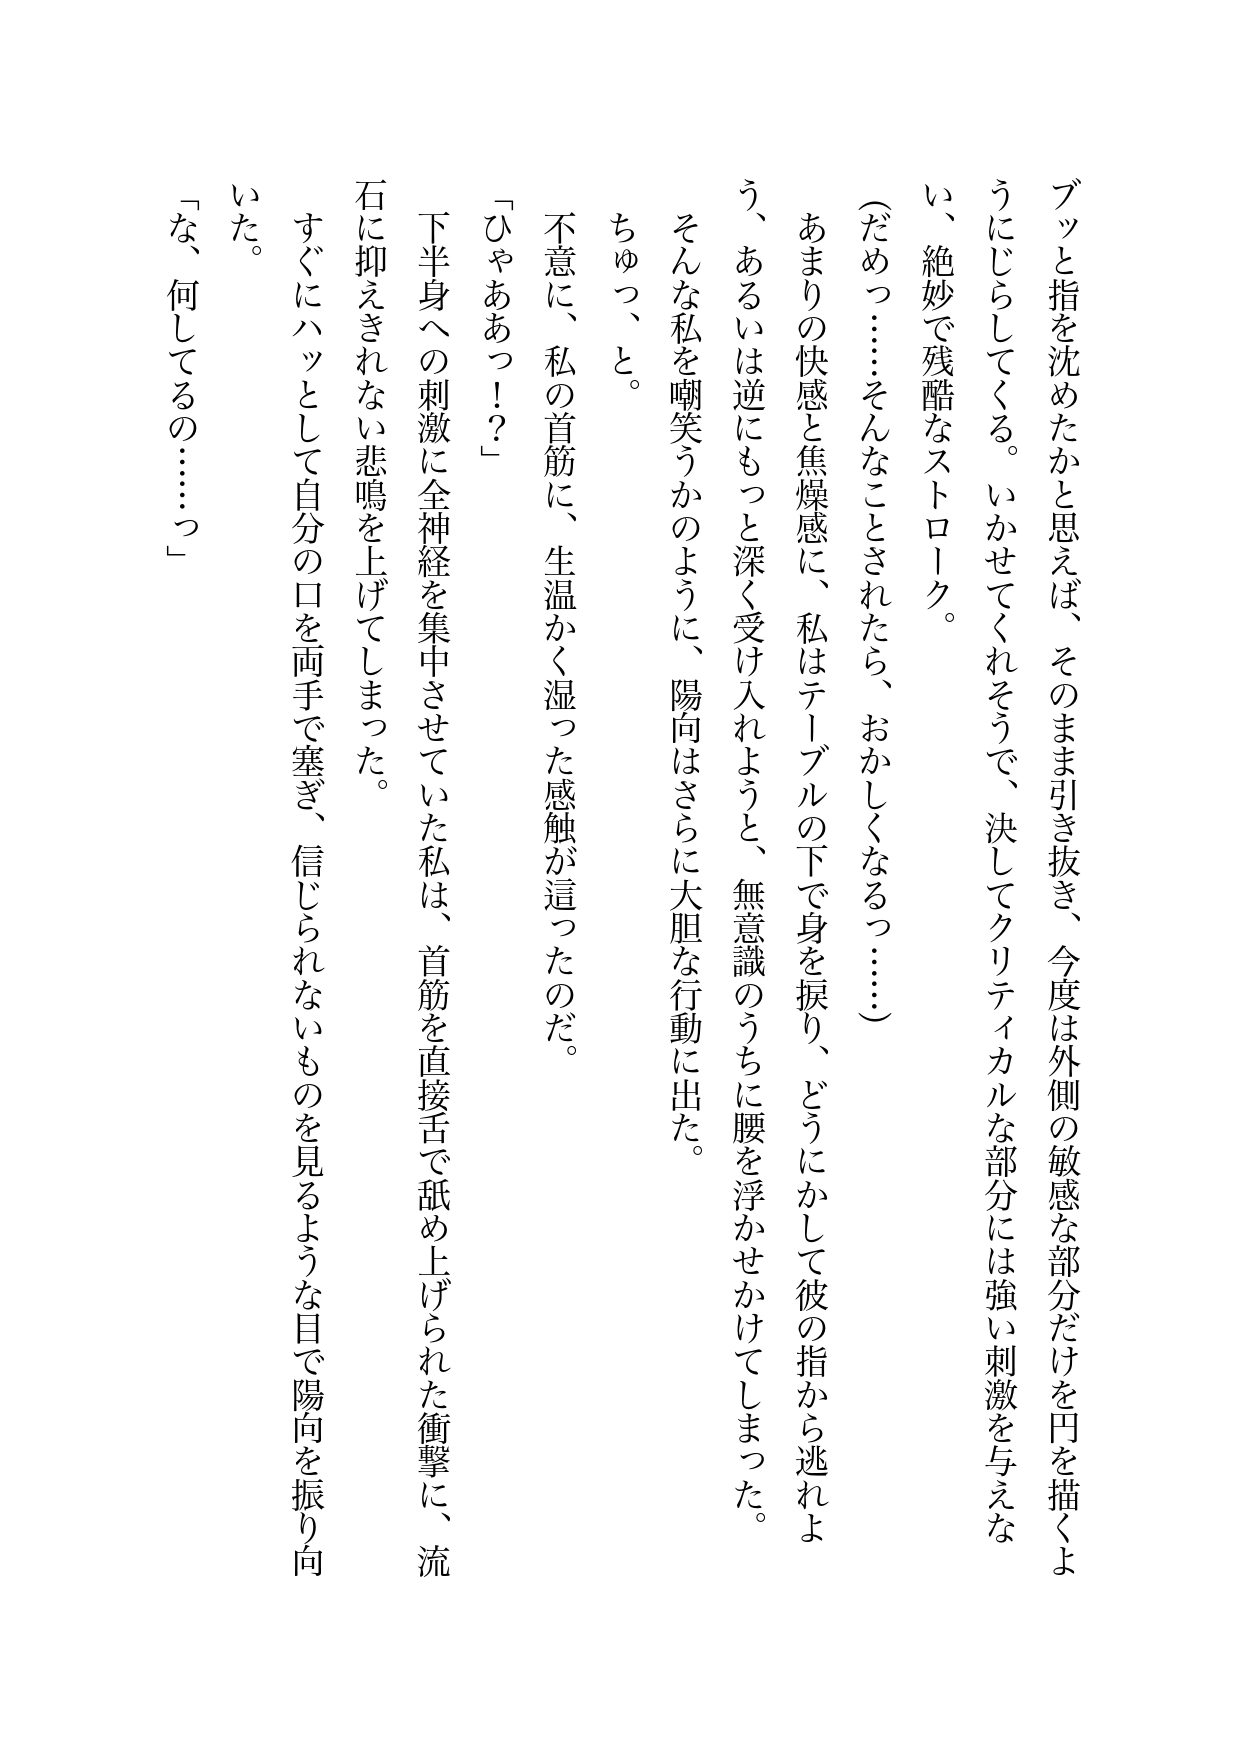 ブッと指を沈めたかと思えば、そのまま引き抜き、今度は外側の敏感な部分だけを円を描くよ
うにじらしてくる。いかせてくれそうで、決してクリティカルな部分には強い刺激を与えな
い、絶妙で残酷なストローク。
（だめっ……そんなことされたら、おかしくなるっ……）
　あまりの快感と焦燥感に、私はテーブルの下で身を捩り、どうにかして彼の指から逃れよ
う、あるいは逆にもっと深く受け入れようと、無意識のうちに腰を浮かせかけてしまった。
　そんな私を嘲笑うかのように、陽向はさらに大胆な行動に出た。
　ちゅっ、と。
　不意に、私の首筋に、生温かく湿った感触が這ったのだ。
「ひゃああっ！？」
　下半身への刺激に全神経を集中させていた私は、首筋を直接舌で舐め上げられた衝撃に、流
石に抑えきれない悲鳴を上げてしまった。
　すぐにハッとして自分の口を両手で塞ぎ、信じられないものを見るような目で陽向を振り向
いた。
「な、何してるの……っ」